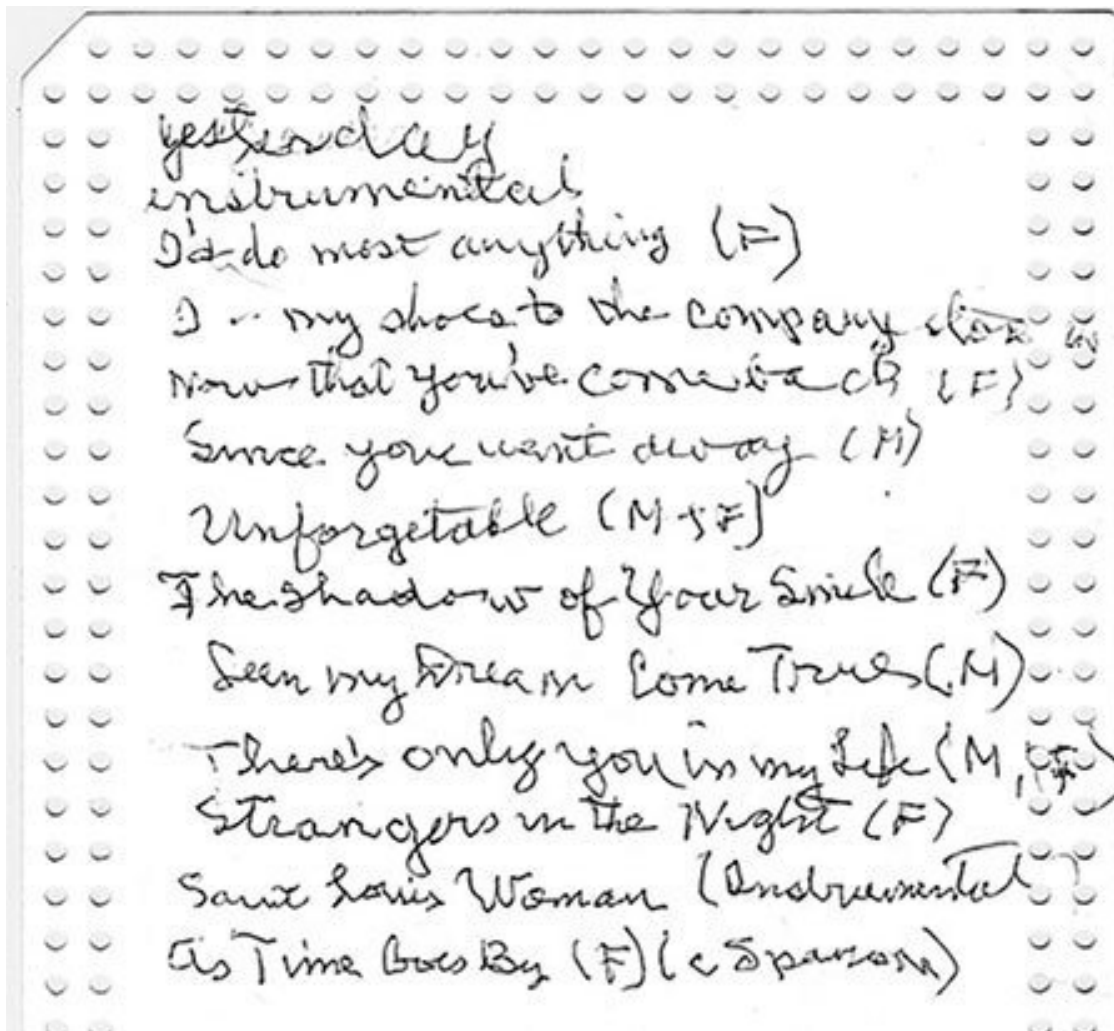 yesterday
instrumental
I'd do most anything (F)
I .. my shoes to the company store
Now that you've come back (F)
Since you went away (M)
Unforgetable (M + F)
The Shadow of Your Smile (F)
Seen my Dream Come True (M)
There's only you in my Life (M,
Strangers in the Night (F)
Saint Louis Woman (Instrumental
As Time Goes By (F) (